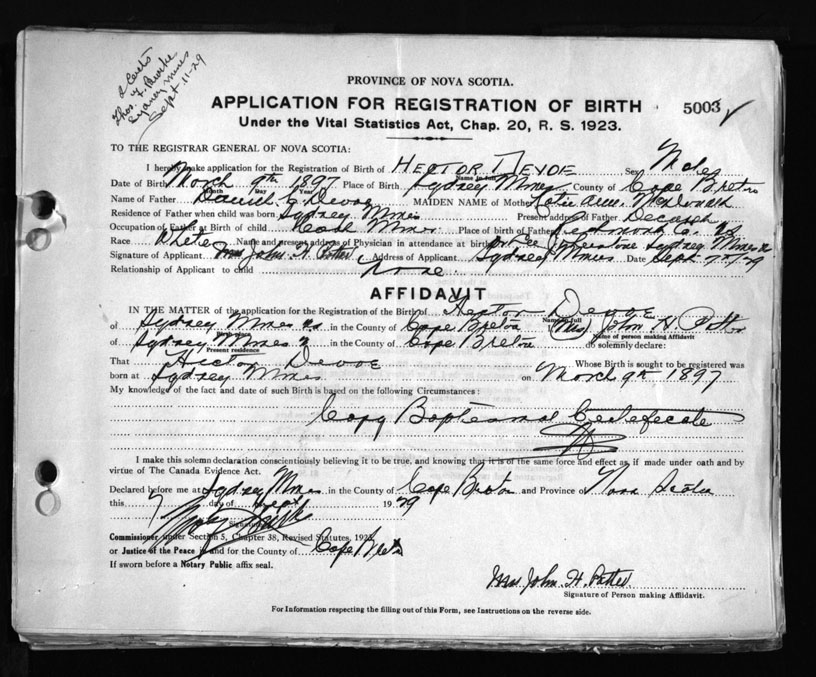 2 Certs
Thos. F. Burke
Sydney Mines
Sept 11-29
PROVINCE OF NOVA SCOTIA.
APPLICATION FOR REGISTRATION OF BIRTH 5003
Under the Vital Statistics Act, Chap. 20, R. S. 1923.
TO THE REGISTRAR GENERAL OF NOVA SCOTIA:
I hereby make application for the Registration of Birth of HECTOR DEVOE Sex Male
Name in full
Date of Birth March 9th 1897 Place of Birth Sydney Mines County of Cape Breton
Month Day Year
Name of Father Daniel C. Devoe MAIDEN NAME of Mother Katie Ann McDonald
Residence of Father when child was born Sydney Mines Present address of Father Deceased
Occupation of Father at Birth of child Coal Miner Place of birth of Father Richmond Co. NS
Race White Name and present address of Physician in attendance at birth Sydney Mines
Signature of Applicant Mrs John H. Potter Address of Applicant Sydney Mines Date Sept 7th/29
Relationship of Applicant to child None.
AFFIDAVIT
IN THE MATTER of the application for the Registration of the Birth of Hector Devoe
Name in Full
of Sydney Mines NS in the County of Cape Breton I Mrs John H. Potter
Birth-place Name of person making Affidavit
of Sydney Mines in the County of Cape Breton do solemnly declare:
Present residence
That Hector Devoe Whose Birth is sought to be registered was
born at Sydney Mines on March 9th 1897
My knowledge of the fact and date of such Birth is based on the following Circumstances:
Copy Baptismal Certificate
I make this solemn declaration conscientiously believing it to be true, and knowing that it is of the same force and effect as, if made under oath and by
virtue of The Canada Evidence Act.
Declared before me at Sydney Mines in the County of Cape Breton and Province of Nova Scotia
this 7 day of Sept 1929
Signature
Commissioner under Section 5, Chapter 38, Revised Statutes, 1923
or Justice of the Peace in and for the County of Cape Breton
If sworn before a Notary Public affix seal.
Mrs John H. Potter
Signature of Person making Affidavit.
For Information respecting the filling out of this Form, see Instructions on the reverse side.